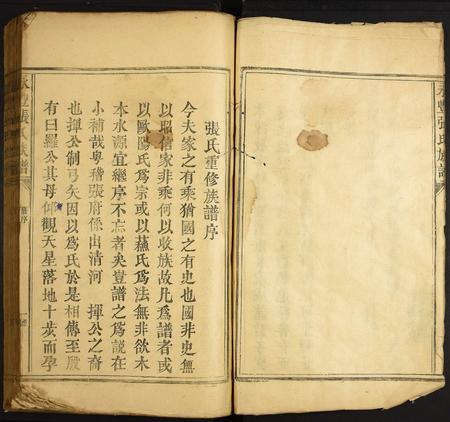 永豐張氏族譜
張氏重修族譜序
今夫家之有乘猶國之有史也國非史無
以昭信家非乘何以收族故凡為譜者或
以歐陽氏為宗或以蘇氏為法無非欲木
本水源宜繼序不忘者矣豈譜之為說在
小補哉粵稽張府係出清河 揮公之裔
也揮公制弓矢因以為氏於是相傳至殷
有曰羅公其母仰觀天星落地十步而孕
永豐張氏族譜
序
一